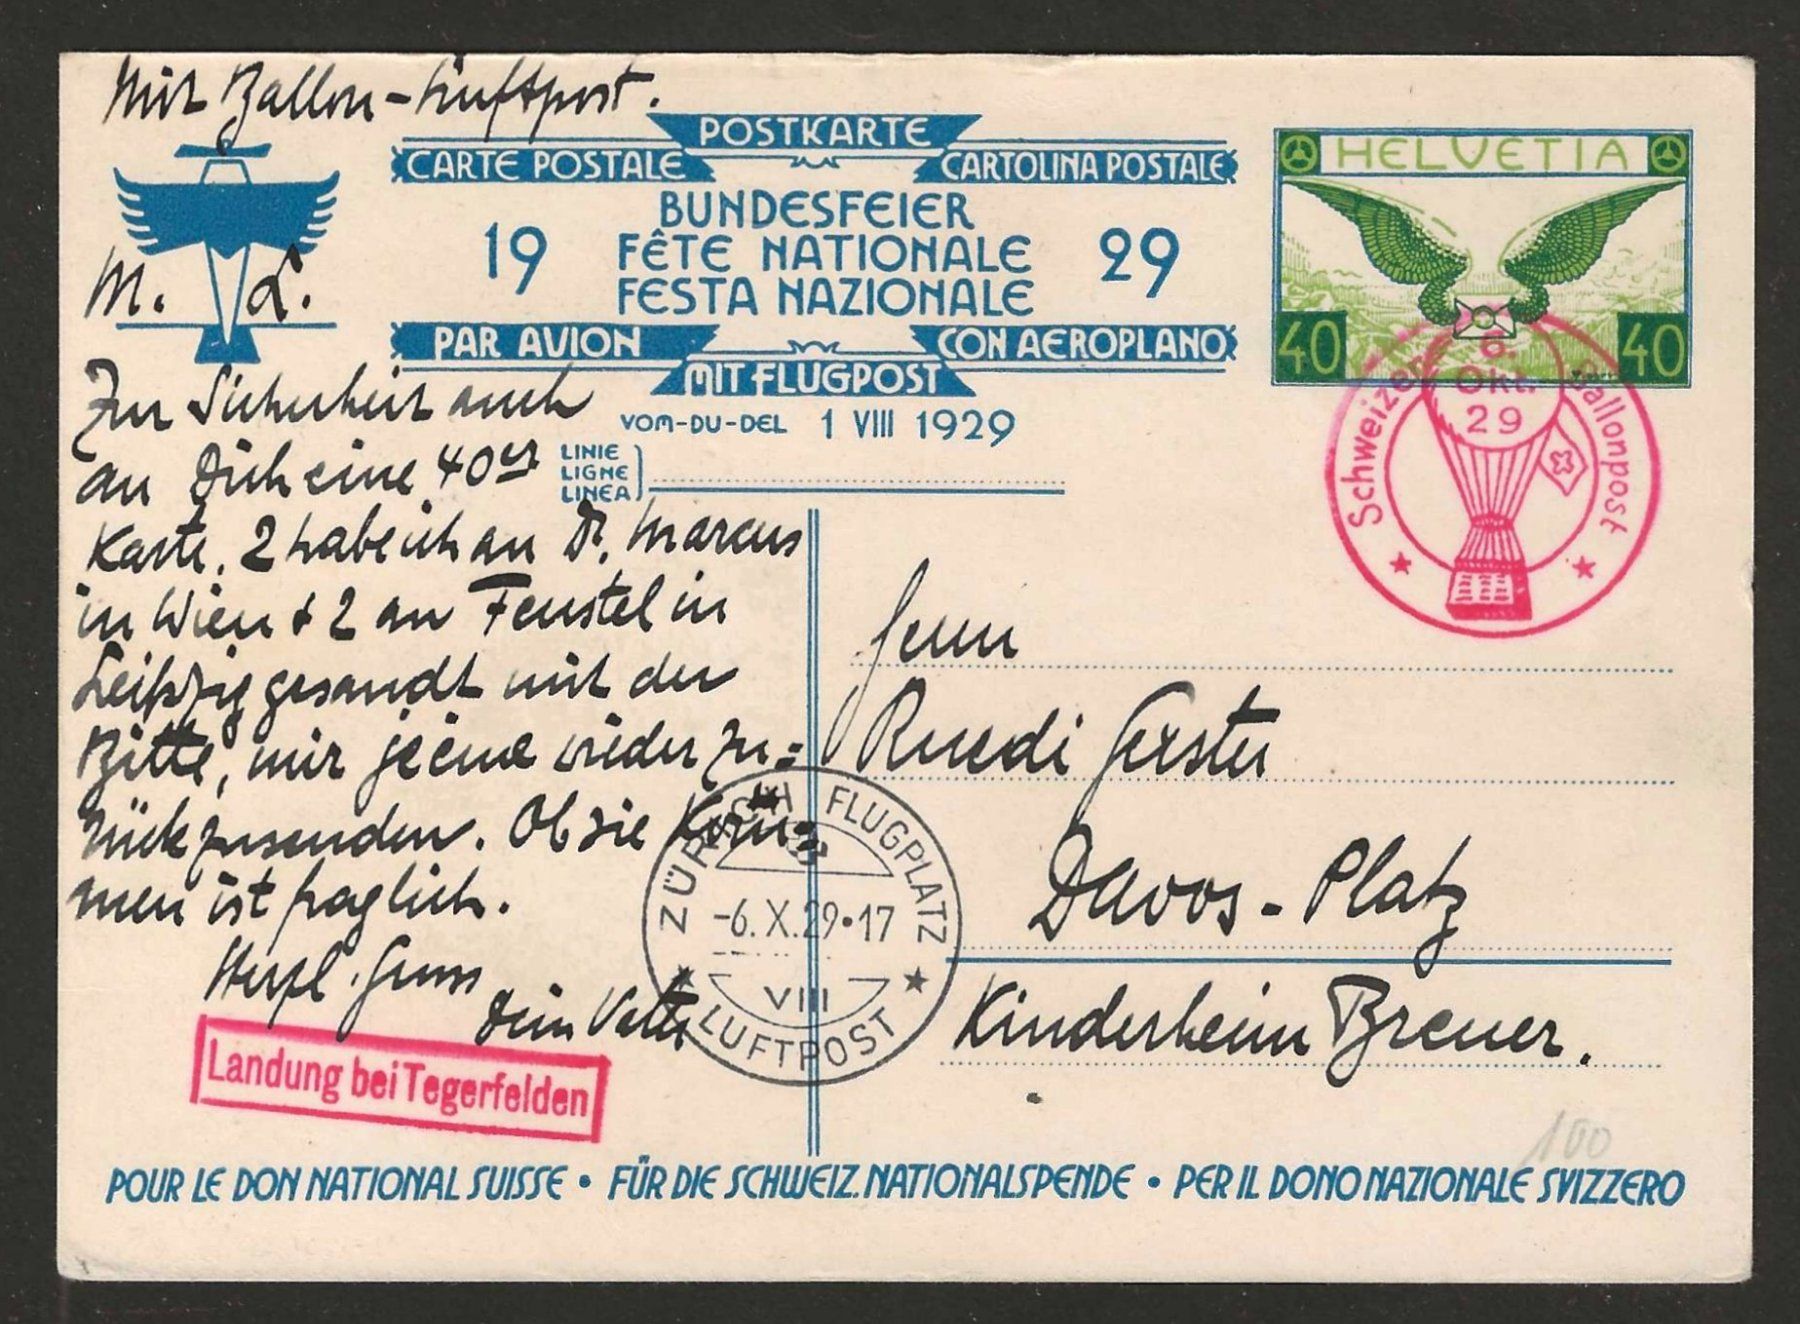 Mit Ballon-Luftpost.
POSTKARTE
CARTE POSTALE
CARTOLINA POSTALE
BUNDESFEIER
19 FÊTE NATIONALE 29
FESTA NAZIONALE
PAR AVION
CON AEROPLANO
MIT FLUGPOST
VOM-DU-DEL 1 VIII 1929
LINIE
LIGNE
LINEA
HELVETIA
40 40
Schweizer Ballonpost
6.
Okt.
29
M. L.
Zur Sicherheit auch
an Dich eine 40er
Karte. 2 habe ich an Dr. Marcus
in Wien & 2 an Fenstel in
Leipzig gesandt mit der
Bitte, mir je eine wieder zu=
rückzusenden. Ob sie Kom=
men ist fraglich.
Herzl. Gruss
Dein Vater
Herrn
Ruedi Gerster
Davos-Platz
Kinderheim Breuer.
ZÜRICH FLUGPLATZ
-6.X.29·17
VIII
LUFTPOST
Landung bei Tegerfelden
100
POUR LE DON NATIONAL SUISSE • FÜR DIE SCHWEIZ. NATIONALSPENDE • PER IL DONO NAZIONALE SVIZZERO